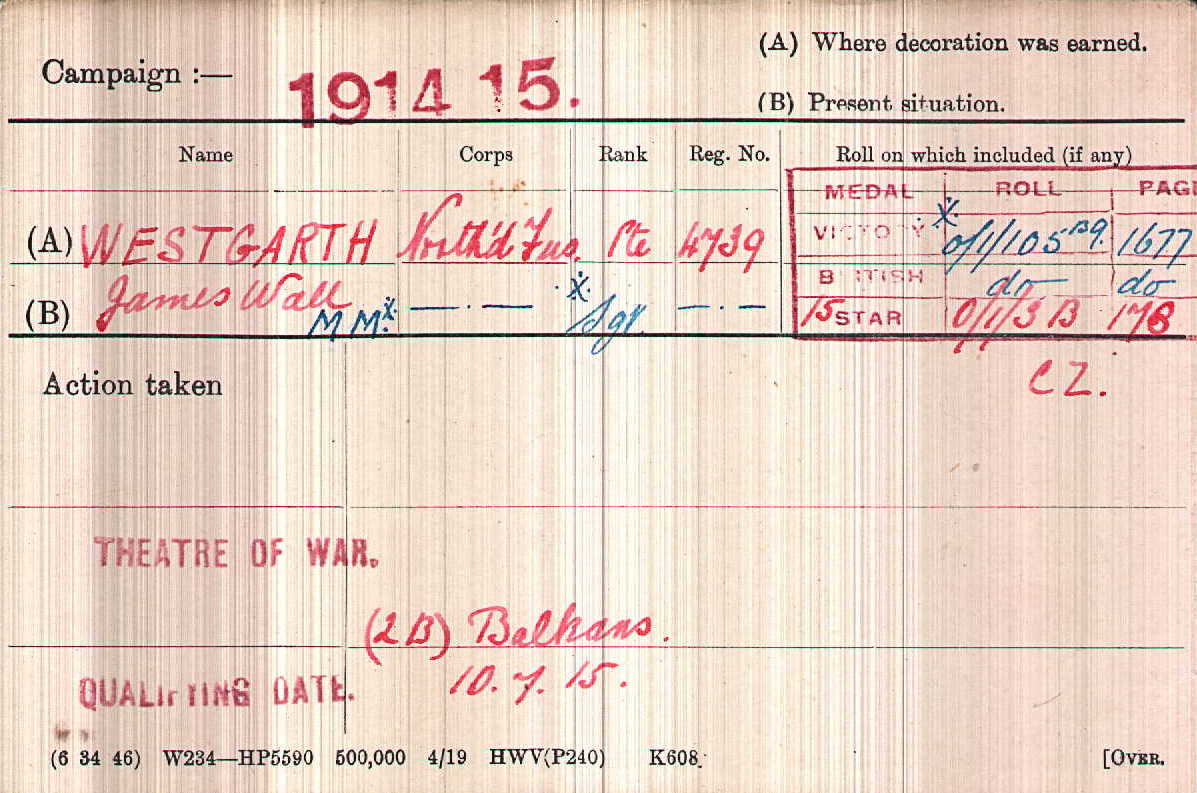 (A) Where decoration was earned.
Campaign :— 1914 15.
(B) Present situation.
Name Corps Rank Reg. No. Roll on which included (if any)
MEDAL ROLL PAGE
(A) WESTGARTH North'd Fus. Pte 4739 VICTORY X. O/1/105 B9. 1677
BRITISH do do
(B) James Wall MM X. — . — X. Sgt. — . — 15 STAR O/1/3 B 178
Action taken CZ.
THEATRE OF WAR.
(2B) Balkans.
QUALIFYING DATE. 10.7.15.
(6 34 46) W234—HP5590 500,000 4/19 HWV(P240) K608. [OVER.